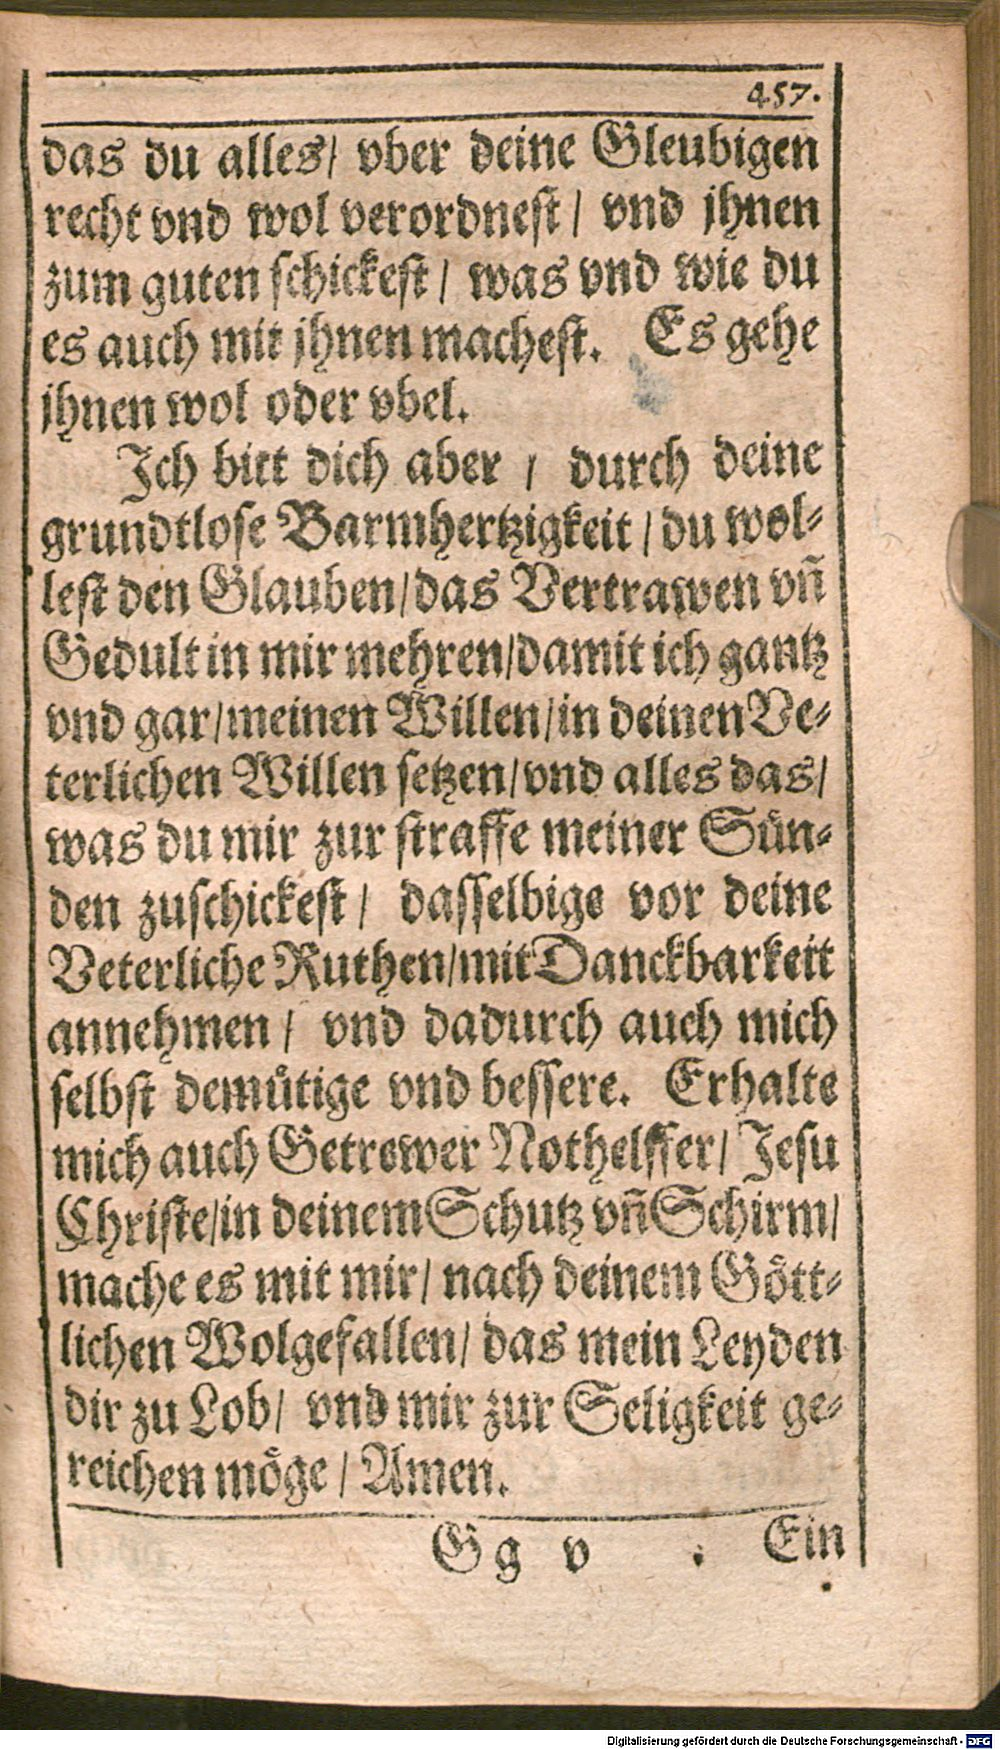 457.
das du alles/ vber deine Gleubigen
recht vnd wol verordnest/ vnd jhnen
zum guten schickest/ was vnd wie du
es auch mit jhnen machest. Es gehe
jhnen wol oder vbel.
Ich bitt dich aber / durch deine
grundtlose Barmhertzigkeit / du wol-
lest den Glauben/das Vertrawen vñ
Gedult in mir mehren/damit ich gantz
vnd gar/meinen Willen/in deinen Ve-
terlichen Willen setzen/vnd alles das/
was du mir zur straffe meiner Sün-
den zuschickest/ dasselbige vor deine
Veterliche Ruthen/mit Danckbarkeit
annehmen / vnd dadurch auch mich
selbst demütige vnd bessere. Erhalte
mich auch Getrewer Nothelffer/ Jesu
Christe/in deinem Schutz vñ Schirm/
mache es mit mir/ nach deinem Gött-
lichen Wolgefallen/ das mein Leyden
dir zu Lob/ vnd mir zur Seligkeit ge-
reichen möge / Amen.
Gg v Ein
Digitalisierung gefördert durch die Deutsche Forschungsgemeinschaft - DFG